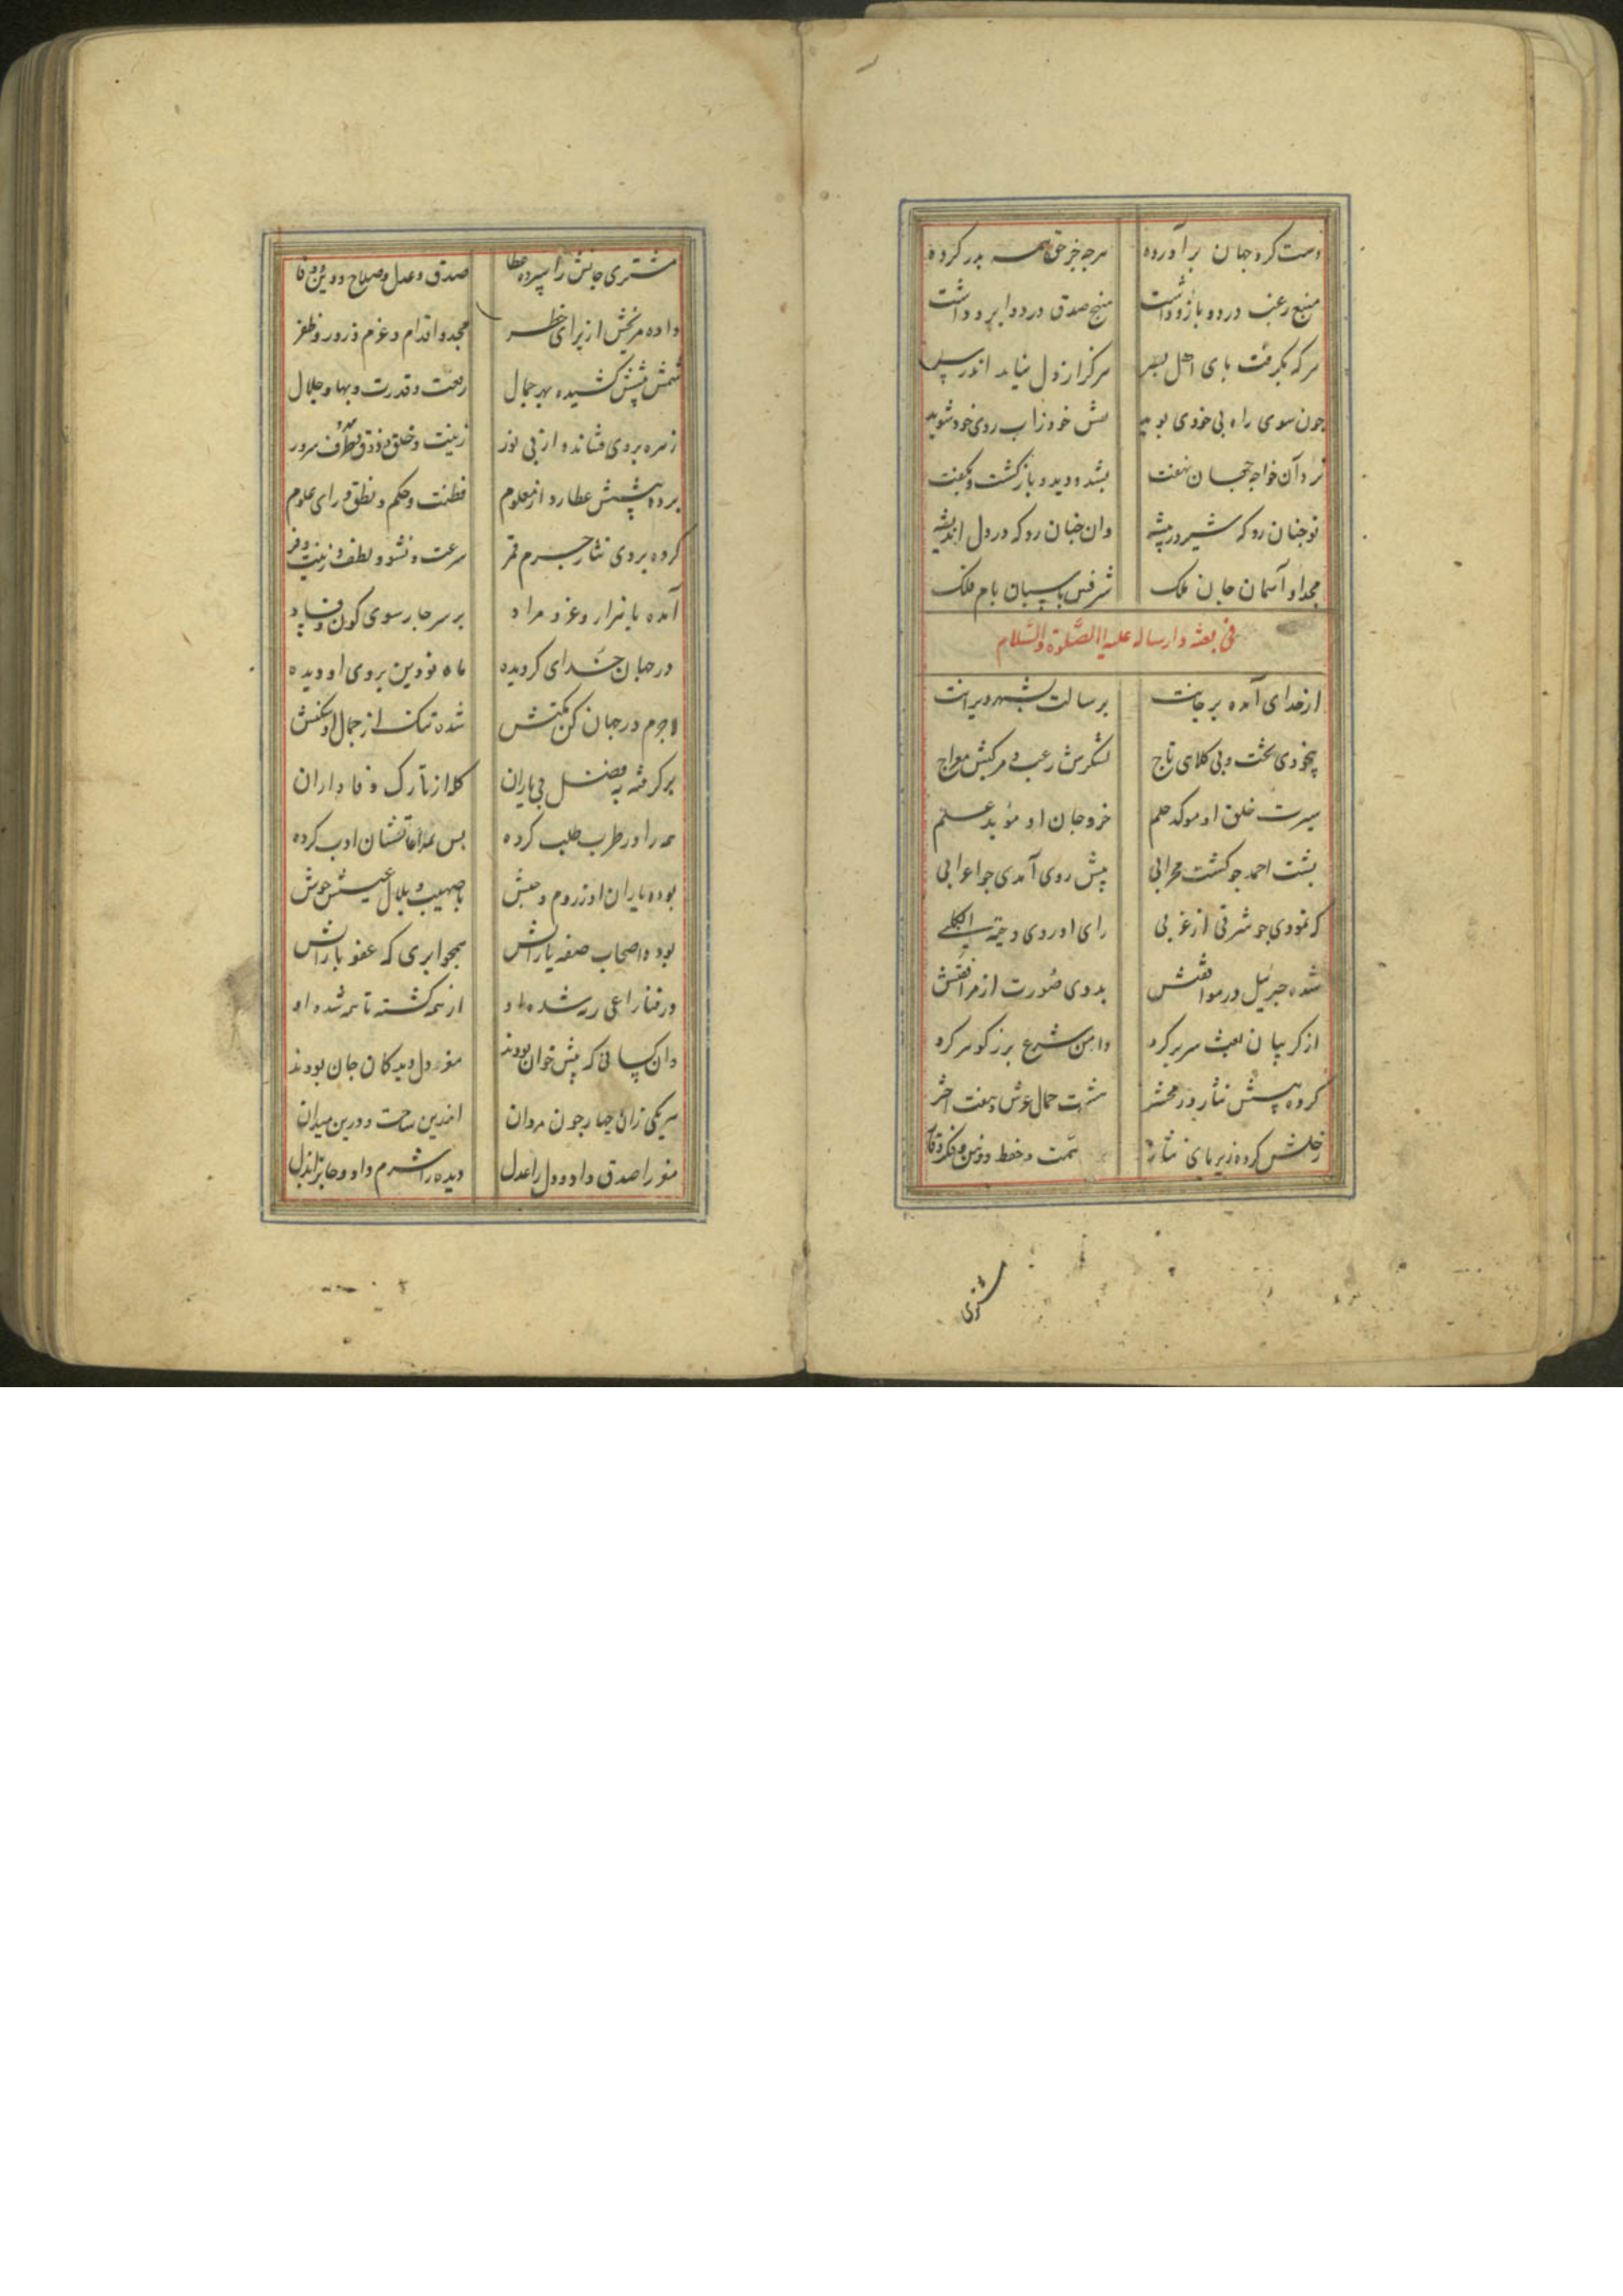 دست کرد جهان برآورده هرچه جز حق همه بدر کرده
منبع رعب در دو بازو داشت منبح صدق در دو ابرو داشت
هرکه بگرفت پای اهل هرگز از دل نیاید اندر
چون سوی راه بی خودی پوید پیش خود زاب روی خود شوید
نزد آن خواجه جهان نهفت بشد و دید و باز گشت و بگفت
توجنان رو که شیر در بیشه وان جنان رو که در دل اندیشه
مجد او آسمان جان ملک شرفش پاسبان بام فلک
فی بعثه وارساله علیه الصلوة والسلام
از خدای آمده بر جانت برسالت
بیخودی تخت و بی کلاهی تاج لشکرش رعب و مرکبش معراج
سیرت خلق او موکد حلم خرد جان او موید علم
پشت احمد جو گشت محرابی پیش روی آمدی جو اعرابی
که نمودی جو شرقی از غربی رای او روی دحیه الکلبی
شده جبرئیل در موافقتش بدوی صورت از مرافقتش
از گریبان بعث سر بر کرد دامن شرع پر ز گوهر کرد
کرده پیشش نثار در محشر هشت حمال عرش و هفت اختر
زحلش کرده زیر پای نثار همت و حفظ و ذهن و فکر و وقار
مشتری
مشتری جانش را سپرده عطا صدق و عدل و صلاح و دین و وفا
داده مریخش از برای خطر مجد و اقدام و عزم و زور و ظفر
شمش پیشش کشیده بهر جمال رفعت و قدرت و بها و جلال
زهره بروی فشانده از پی نور زینت و خلق و ذوق و ظرف و سرور
برده پیشش عطارد از معلوم فطنت و حکم و نطق و رای علوم
کرده بروی نثار جرم قمر سرعت و نشو و لطف و زینت و فر
آمده با هزار و عز و مراد بر سر چار سوی کون و فساد
در جهان خدای گردیده ماه نو دین بروی او دیده
لاجرم در جهان کن مکنش شده تنگ از جمال او سکنش
برگرفته به فضل بی یاران کله از تارک وفاداران
همه را در طرب طلب کرده پس بمراعاتشان ادب کرده
بوده یاران او ز روم و حبش با صهیب و بلال عیشش خوش
بوده اصحاب صفه یارانش همجو ابری که عفو بارانش
در فنا راعی رمه شده او از همه گشته تا همه شده او
وان کسانی که پیش خوان بودند مغز دل دیدگان جان بودند
هریکی زان چهار جون مردان اندرین ساحت و درین میدان
مغز را صدق داد و دل را عدل دیده را شرم داد و جان را بذل